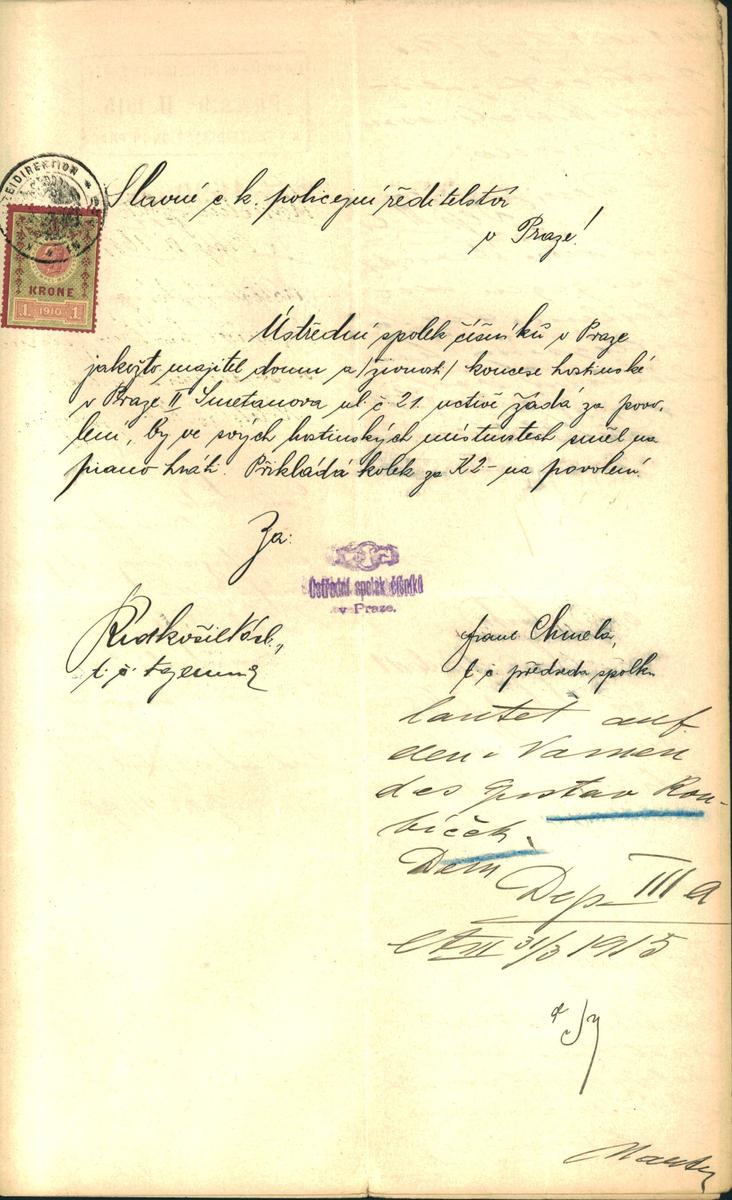 Slavné c. k. policejní ředitelství
v Praze!
EIDIREKTION
KRONE
1 1910 1
Ústřední spolek číšníků v Praze
jakožto majitel domu a /živnosti/ koncese hostinské
v Praze II Smetanova ul. č 21. uctivě žádá za povo-
lení, by ve svých hostinských místnostech směl na
piano hráti. Přikládá kolek za K 2- na povolení.
Za:
Ústřední spolek číšníků
v Praze.
t. č.
Chmela,
t. č. předseda spolku
lautet auf
den Namen
des Gustav Rou-
bíček.
Dem
Dep. III A
31/3 1915